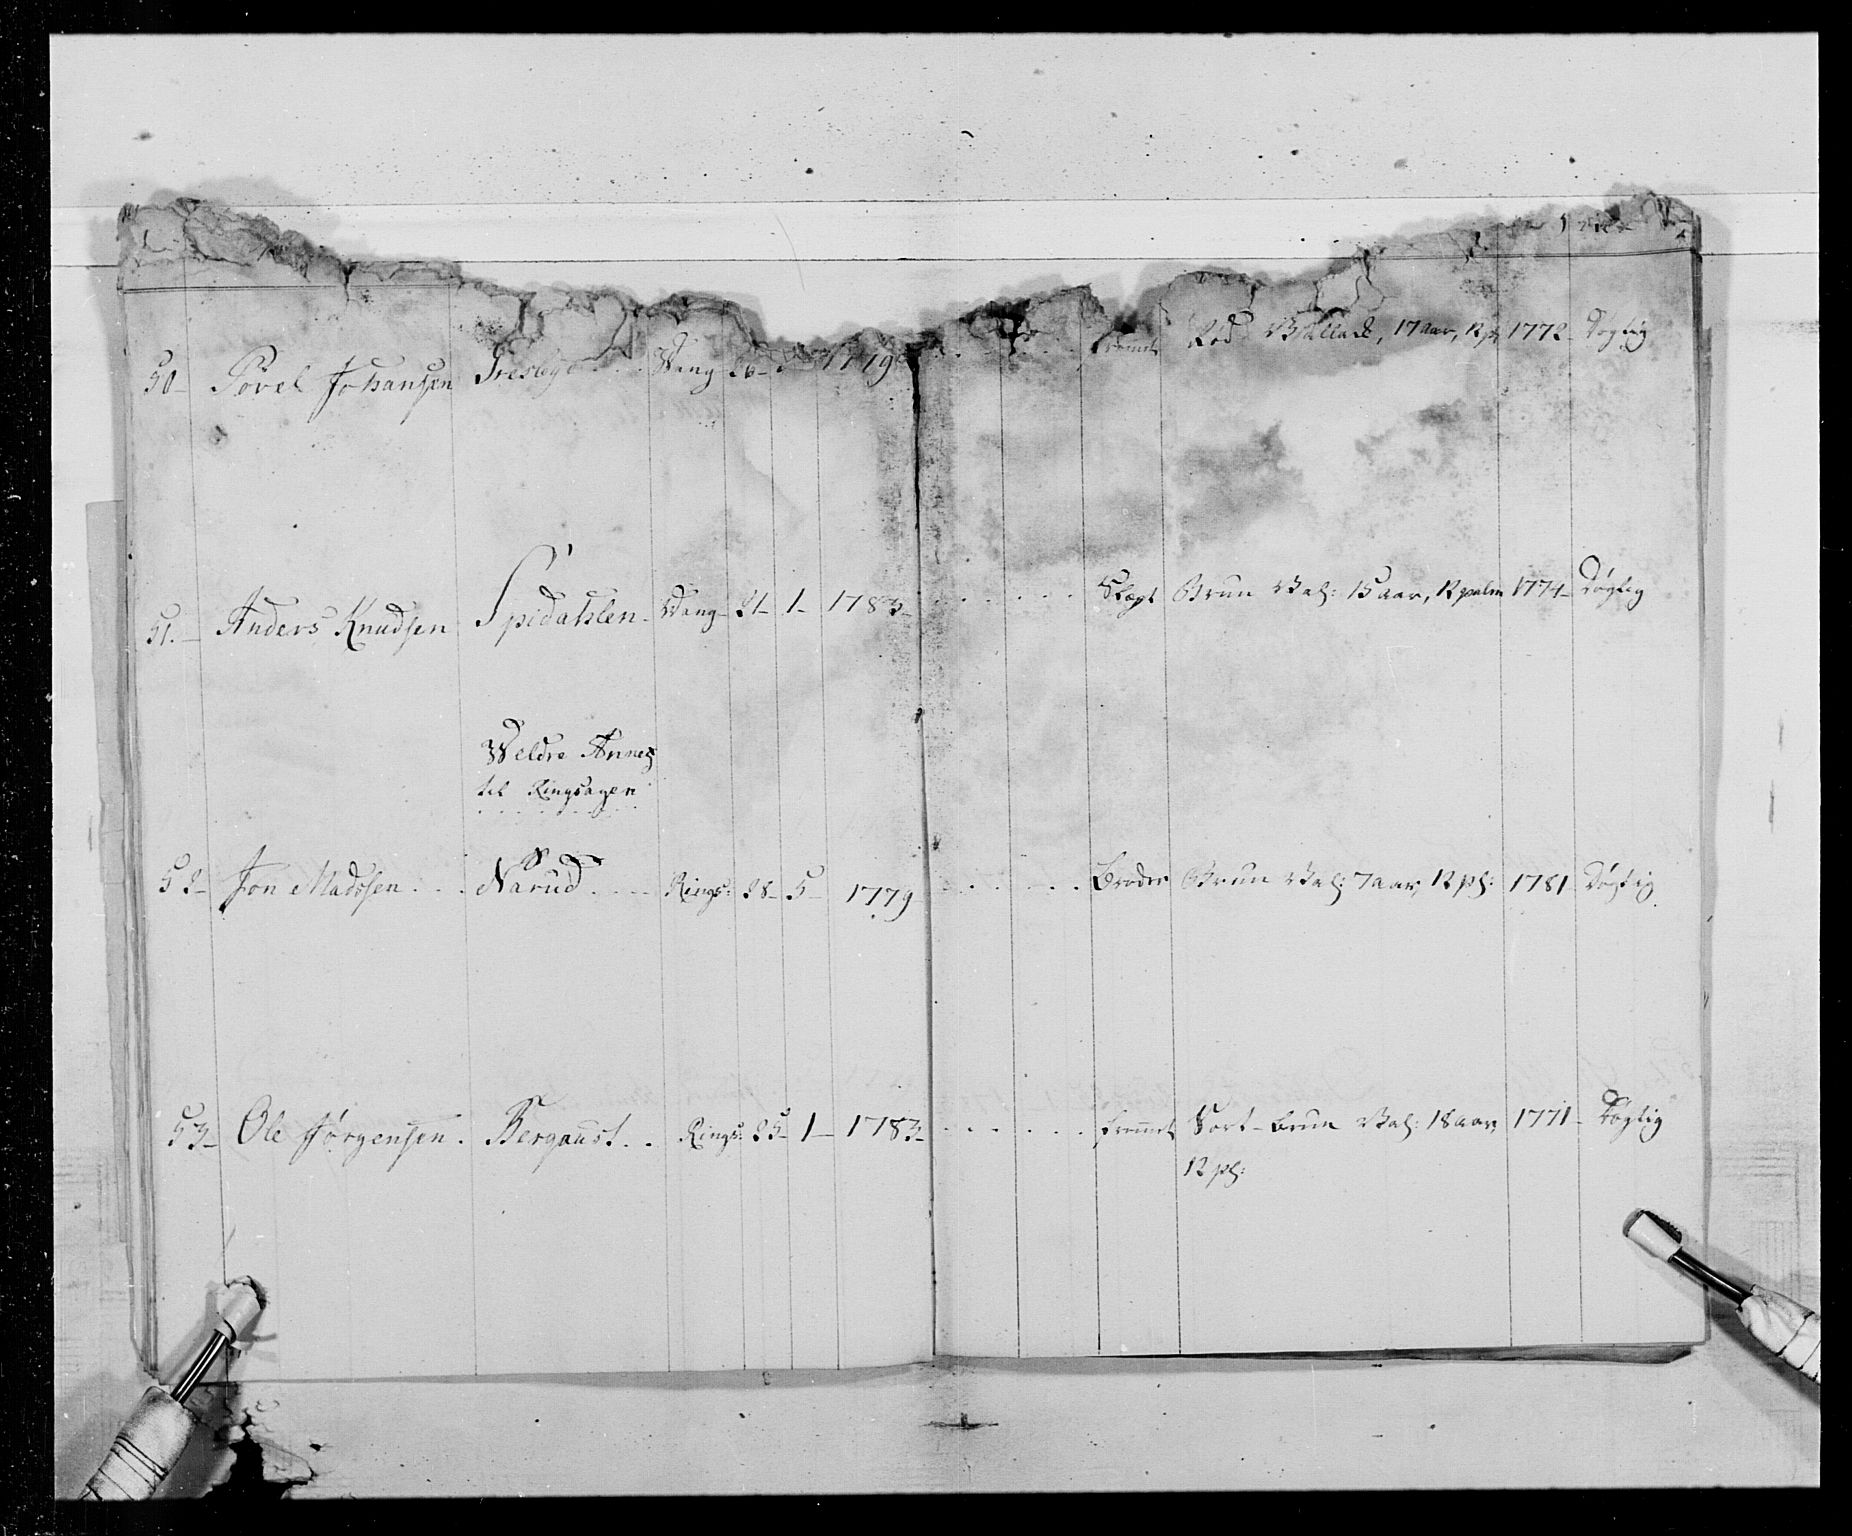 50 - Povel Johansen Freslye . . . Wang 26 - 1779 . . . . fremet Rød Wallack, 17 aar, 12 p 1772 - Døgtig
51. - Anders Knudsen Spidahlen - Wang - 21 - 1 - 1783 - . . . . . . Slegt Brun Wal: 15 aar, 12 palm 1774 - Døgtig
Weldre Annex
til Ringsagen
52 - Jon Madssen . . . Narud . . . . Rings: 28 - 5 - 1779 . . . . . . Broder Brun Wal: 7 aar, 12 pl: 1781 - Døgtig
53 - Ole Jørgensen . Bergaust . . Rings: 25 - 1 - 1783 - . . . . . . fremet Sort-brun Wal: 18 aar, 1771 - Døgtig
12 pl: